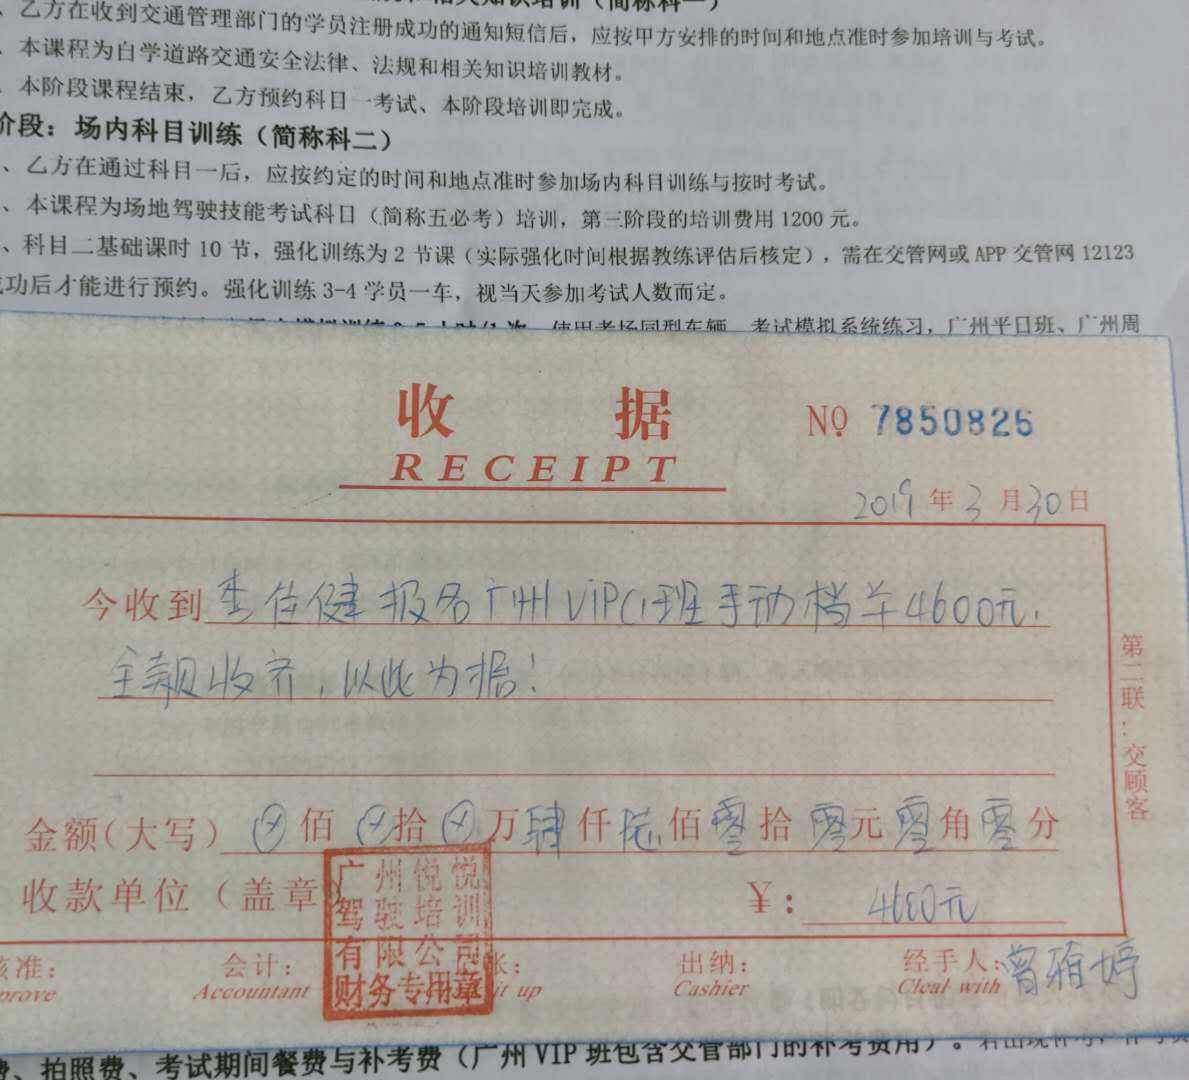 相关知识培训（简称科一）
、乙方在收到交通管理部门的学员注册成功的通知短信后，应按甲方安排的时间和地点准时参加培训与考试。
、本课程为自学道路交通安全法律、法规和相关知识培训教材。
、本阶段课程结束，乙方预约科目一考试、本阶段培训即完成。
阶段：场内科目训练（简称科二）
、乙方在通过科目一后，应按约定的时间和地点准时参加场内科目训练与按时考试。
、本课程为场地驾驶技能考试科目（简称五必考）培训，第三阶段的培训费用 1200 元。
、科目二基础课时 10 节，强化训练为 2 节课（实际强化时间根据教练评估后核定），需在交管网或 APP 交管网 12123
成功后才能进行预约。强化训练 3-4 学员一车，视当天参加考试人数而定。
使用考场同型车辆、考试模拟系统练习，广州平日班、广州周
收 据 NO 7850826
RECEIPT
2019 年 3 月 30 日
今收到 李佳健报名广州VIPC1班手动档车4600元.
全款收齐，以此为据！
第二联：交顾客
金额（大写） ⊗ 佰 ⊗ 拾 ⊗ 万 肆 仟 陆 佰 零 拾 零 元 零 角 零 分
收款单位（盖章） ¥： 4600元
广州悦悦
驾驶培训
有限公司
财务专用章
核准： 会计： 记帐： 出纳： 经手人： 曾雅婷
prove Accountant it up Cashier Cleal with
费、拍照费、考试期间餐费与补考费（广州 VIP 班包含交管部门的补考费用）。